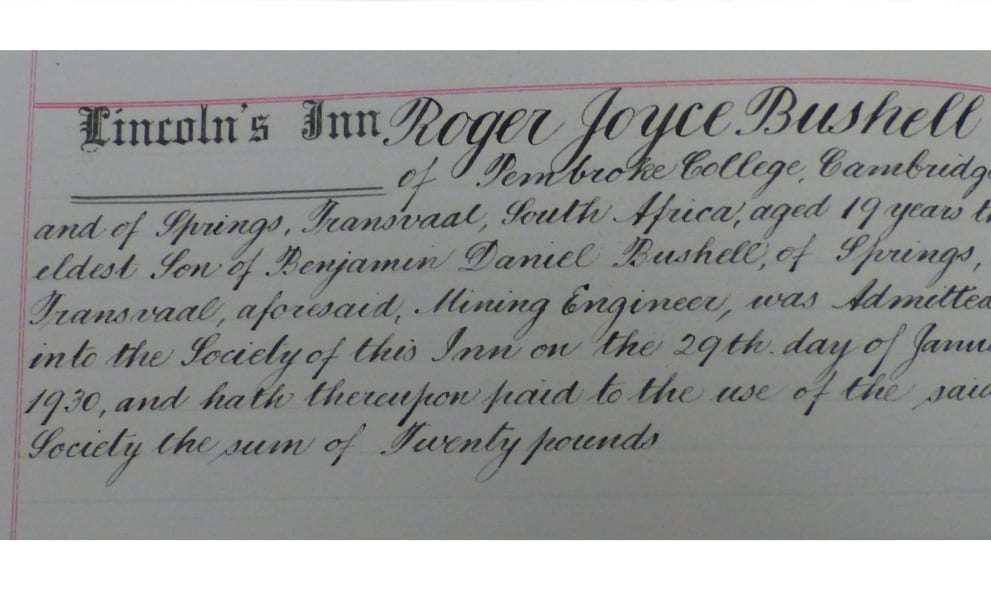 Lincoln's Inn. Roger Joyce Bushell
of Pembroke College, Cambridg
and of Springs, Transvaal, South Africa, aged 19 years th
eldest Son of Benjamin Daniel Bushell, of Springs,
Transvaal, aforesaid, Mining Engineer, was Admitted
into the Society of this Inn on the 29th. day of Janu
1930, and hath thereupon paid to the use of the said
Society the sum of Twenty pounds